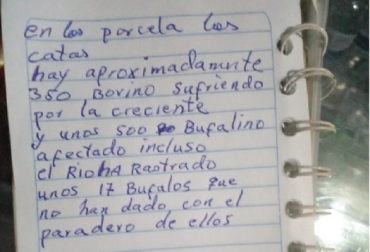 en los parcela los
catas
hay aproximadamente
350 Bovino sufriendo
por la creciente
y unos 500 Bufalino
afectado incluso
el RioHA Rastrado
unos 17 Bufalos que
no han dado con el
paradero de ellos